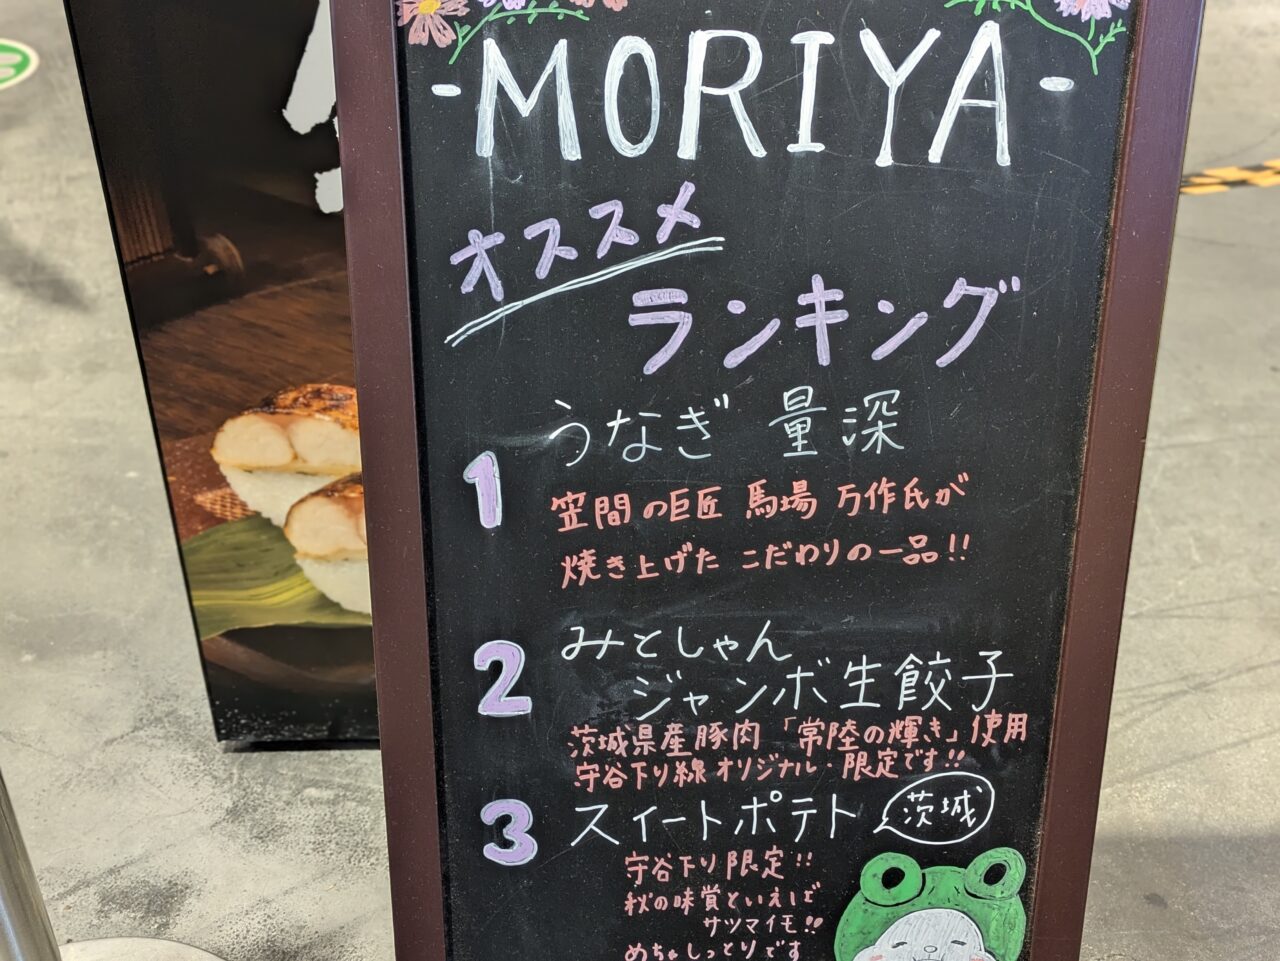 -MORIYA-
オススメ
ランキング
1
うなぎ 量深
笠間の巨匠 馬場 万作氏が
焼き上げた こだわりの一品!!
2
みとしゃん
ジャンボ生餃子
茨城県産豚肉「常陸の輝き」使用
守谷下り線オリジナル・限定です!!
3
スイートポテト
茨城
守谷下り限定!!
秋の味覚といえば
サツマイモ!!
めちゃしっとりです